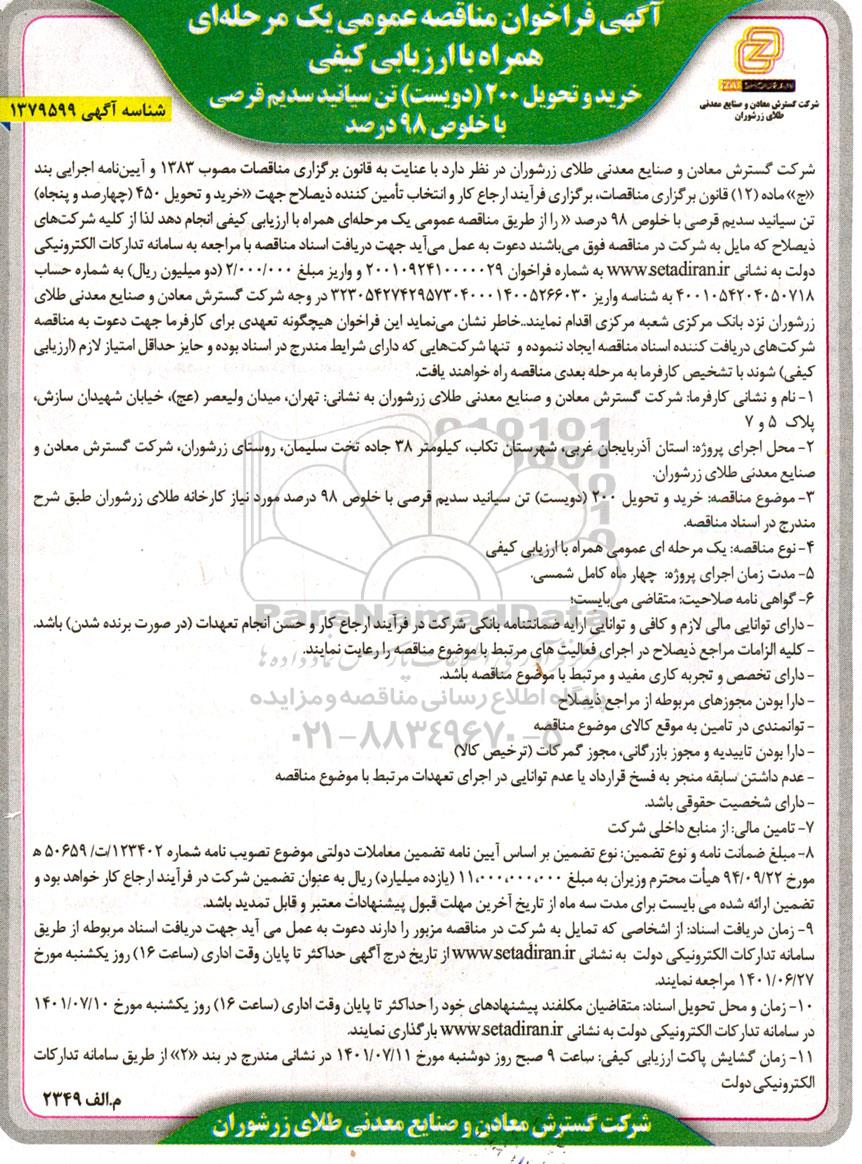 آگهی فراخوان مناقصه عمومی یک مرحله‌ای
همراه با ارزیابی کیفی
خرید و تحویل ۲۰۰ (دویست) تن سیانید سدیم قرصی
با خلوص ۹۸ درصد
شرکت گسترش معادن و صنایع معدنی
طلای زرشوران
شناسه آگهی ۱۳۷۹۵۹۹
شرکت گسترش معادن و صنایع معدنی طلای زرشوران در نظر دارد با عنایت به قانون برگزاری مناقصات مصوب ۱۳۸۳ و آیین‌نامه اجرایی بند
«ج» ماده (۱۲) قانون برگزاری مناقصات، برگزاری فرآیند ارجاع کار و انتخاب تأمین کننده ذیصلاح جهت «خرید و تحویل ۴۵۰ (چهارصد و پنجاه)
تن سیانید سدیم قرصی با خلوص ۹۸ درصد » را از طریق مناقصه عمومی یک مرحله‌ای همراه با ارزیابی کیفی انجام دهد لذا از کلیه شرکت‌های
ذیصلاح که مایل به شرکت در مناقصه فوق می‌باشند دعوت به عمل می‌آید جهت دریافت اسناد مناقصه با مراجعه به سامانه تدارکات الکترونیکی
دولت به نشانی www.setadiran.ir به شماره فراخوان ۲۰۰۱۰۹۲۴۱۰۰۰۰۰۲۹ و واریز مبلغ ۲/۰۰۰/۰۰۰ (دو میلیون ریال) به شماره حساب
۴۰۰۱۰۵۴۲۰۴۰۵۰۷۱۸ به شناسه واریز ۳۲۳۰۵۴۲۷۴۲۹۵۷۳۰۴۰۰۰۱۴۰۰۵۲۶۶۰۳۰ در وجه شرکت گسترش معادن و صنایع معدنی طلای
زرشوران نزد بانک مرکزی شعبه مرکزی اقدام نمایند..خاطر نشان می‌نماید این فراخوان هیچگونه تعهدی برای کارفرما جهت دعوت به مناقصه
شرکت‌های دریافت کننده اسناد مناقصه ایجاد ننموده و تنها شرکت‌هایی که دارای شرایط مندرج در اسناد بوده و حایز حداقل امتیاز لازم (ارزیابی
کیفی) شوند با تشخیص کارفرما به مرحله بعدی مناقصه راه خواهند یافت.
۱- نام و نشانی کارفرما: شرکت گسترش معادن و صنایع معدنی طلای زرشوران به نشانی: تهران، میدان ولیعصر (عج)، خیابان شهیدان سازش،
پلاک ۵ و ۷
۲- محل اجرای پروژه: استان آذربایجان غربی، شهرستان تکاب، کیلومتر ۳۸ جاده تخت سلیمان، روستای زرشوران، شرکت گسترش معادن و
صنایع معدنی طلای زرشوران.
۳- موضوع مناقصه: خرید و تحویل ۲۰۰ (دویست) تن سیانید سدیم قرصی با خلوص ۹۸ درصد مورد نیاز کارخانه طلای زرشوران طبق شرح
مندرج در اسناد مناقصه.
۴- نوع مناقصه: یک مرحله ای عمومی همراه با ارزیابی کیفی
۵- مدت زمان اجرای پروژه: چهار ماه کامل شمسی.
۶- گواهی نامه صلاحیت: متقاضی می‌بایست؛
- دارای توانایی مالی لازم و کافی و توانایی ارایه ضمانتنامه بانکی شرکت در فرآیند ارجاع کار و حسن انجام تعهدات (در صورت برنده شدن) باشد.
- کلیه الزامات مراجع ذیصلاح در اجرای فعالیت های مرتبط با موضوع مناقصه را رعایت نمایند.
- دارای تخصص و تجربه کاری مفید و مرتبط با موضوع مناقصه باشد.
- دارا بودن مجوزهای مربوطه از مراجع ذیصلاح
- توانمندی در تامین به موقع کالای موضوع مناقصه
- دارا بودن تاییدیه و مجوز بازرگانی، مجوز گمرکات (ترخیص کالا)
- عدم داشتن سابقه منجر به فسخ قرارداد یا عدم توانایی در اجرای تعهدات مرتبط با موضوع مناقصه
- دارای شخصیت حقوقی باشد.
۷- تامین مالی: از منابع داخلی شرکت
۸- مبلغ ضمانت نامه و نوع تضمین: نوع تضمین بر اساس آیین نامه تضمین معاملات دولتی موضوع تصویب نامه شماره ۱۲۳۴۰۲/ت/۵۰۶۵۹ ه
مورخ ۹۴/۰۹/۲۲ هیأت محترم وزیران به مبلغ ۱۱،۰۰۰،۰۰۰،۰۰۰ (یازده میلیارد) ریال به عنوان تضمین شرکت در فرآیند ارجاع کار خواهد بود و
تضمین ارائه شده می بایست برای مدت سه ماه از تاریخ آخرین مهلت قبول پیشنهادات معتبر و قابل تمدید باشد.
۹- زمان دریافت اسناد: از اشخاصی که تمایل به شرکت در مناقصه مزبور را دارند دعوت به عمل می آید جهت دریافت اسناد مربوطه از طریق
سامانه تدارکات الکترونیکی دولت به نشانی www.setadiran.ir از تاریخ درج آگهی حداکثر تا پایان وقت اداری (ساعت ۱۶) روز یکشنبه مورخ
۱۴۰۱/۰۶/۲۷ مراجعه نمایند.
۱۰- زمان و محل تحویل اسناد: متقاضیان مکلفند پیشنهادهای خود را حداکثر تا پایان وقت اداری (ساعت ۱۶) روز یکشنبه مورخ ۱۴۰۱/۰۷/۱۰
در سامانه تدارکات الکترونیکی دولت به نشانی www.setadiran.ir بارگذاری نمایند.
۱۱- زمان گشایش پاکت ارزیابی کیفی: ساعت ۹ صبح روز دوشنبه مورخ ۱۴۰۱/۰۷/۱۱ در نشانی مندرج در بند «۲» از طریق سامانه تدارکات
الکترونیکی دولت
م.الف ۲۳۴۹
شرکت گسترش معادن و صنایع معدنی طلای زرشوران
ParsNamadData
پایگاه اطلاع رسانی مناقصه و مزایده
۰۲۱-۸۸۳۴۹۶۷۰-۵